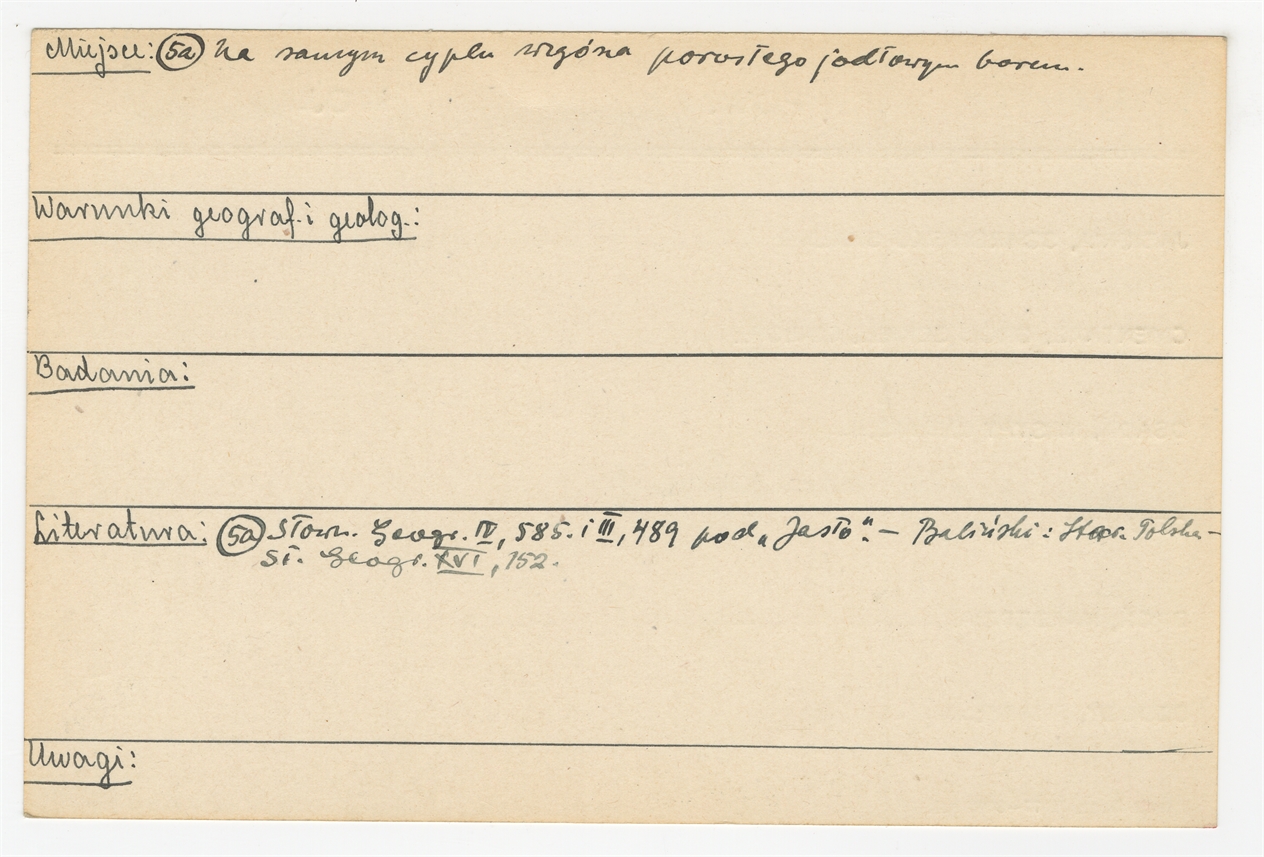 Miejsce: 5a Na samym cyplu wzgórza porosłego jodłowym borem.
Warunki geograf. i geolog.:
Badania:
Literatura: 5a Słown. Geogr. IV, 585. i III, 489 pod „Jasło". — Baliński: Star. Polska —
Sł. Geogr. XVI, 152.
Uwagi: